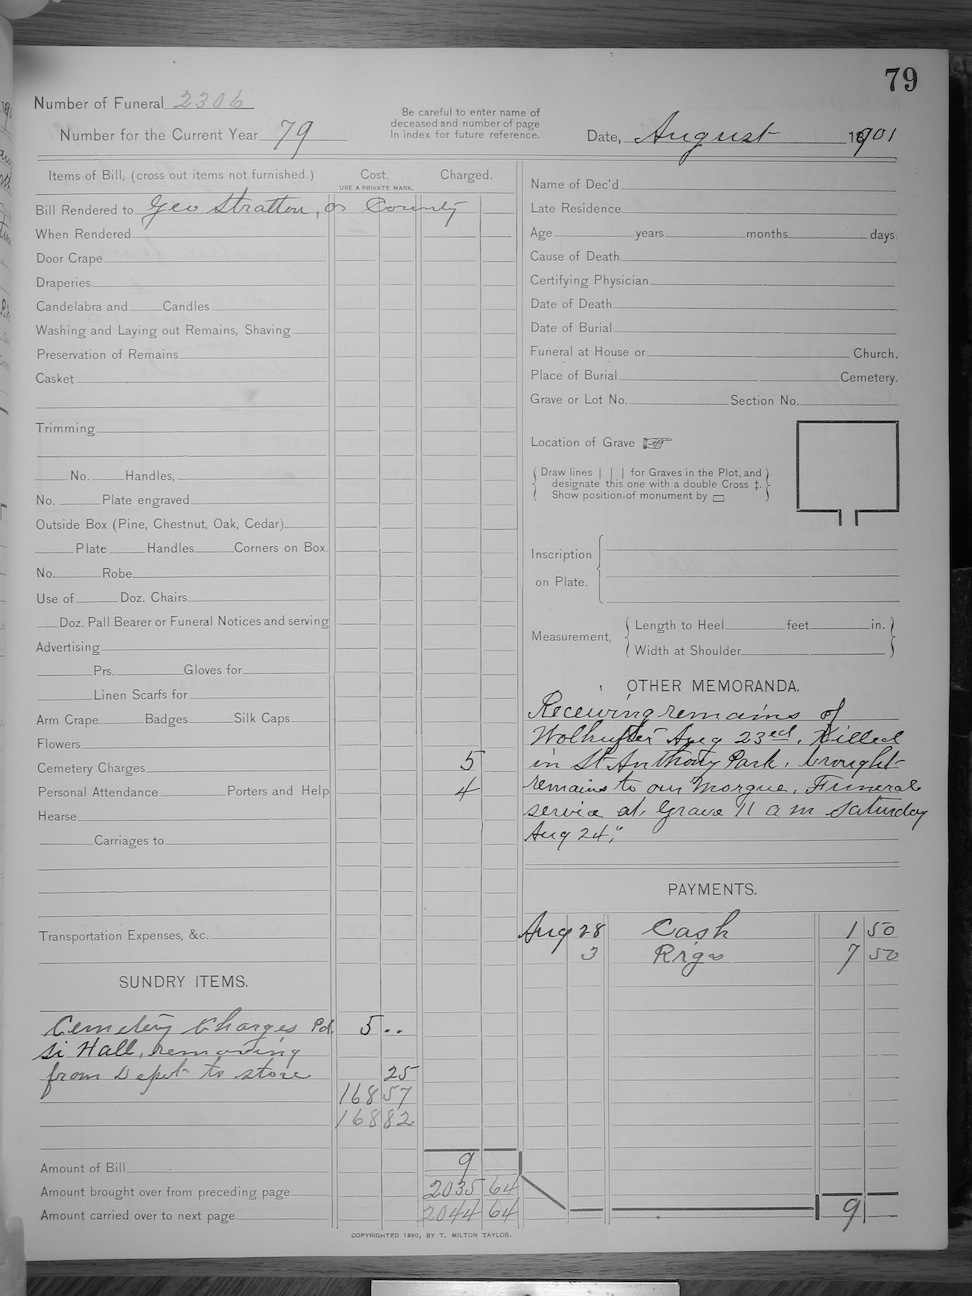 79
Number of Funeral 2306
Number for the Current Year 79
Be careful to enter name of
deceased and number of page
in index for future reference.
Date, August 1901
Items of Bill, (cross out items not furnished.) Cost. Charged.
USE A PRIVATE MARK.
Bill Rendered to Geo Stratton, or County
When Rendered
Door Crape
Draperies
Candelabra and Candles
Washing and Laying out Remains, Shaving
Preservation of Remains
Casket
Trimming
No. Handles,
No. Plate engraved
Outside Box (Pine, Chestnut, Oak, Cedar)
Plate Handles Corners on Box.
No. Robe
Use of Doz. Chairs
Doz. Pall Bearer or Funeral Notices and serving
Advertising
Prs. Gloves for
Linen Scarfs for
Arm Crape Badges Silk Caps
Flowers
Cemetery Charges 5
Personal Attendance Porters and Help 4
Hearse
Carriages to
Transportation Expenses, &c.
SUNDRY ITEMS.
Cemetery Charges Pd. 5 ..
Si Hall, removing
from Depot to store 25
168 57
168 82
Amount of Bill 9
Amount brought over from preceding page 2035 64
Amount carried over to next page 2044 64
Name of Dec'd
Late Residence
Age years months days.
Cause of Death
Certifying Physician
Date of Death
Date of Burial
Funeral at House or Church.
Place of Burial Cemetery.
Grave or Lot No. Section No.
Location of Grave
Draw lines | | | for Graves in the Plot, and
designate this one with a double Cross ‡.
Show position of monument by ▭
Inscription
on Plate.
Measurement, Length to Heel feet in.
Width at Shoulder
OTHER MEMORANDA.
Receiving remains of
Aug 23rd. Killed
in St Anthony Park. brought
remains to our Morgue. Funeral
service at grave 11 a m Saturday
Aug 24."
PAYMENTS.
Aug 28 Cash 1 50
3 Rigs 7 50
9
COPYRIGHTED 1890, BY T. MILTON TAYLOR.